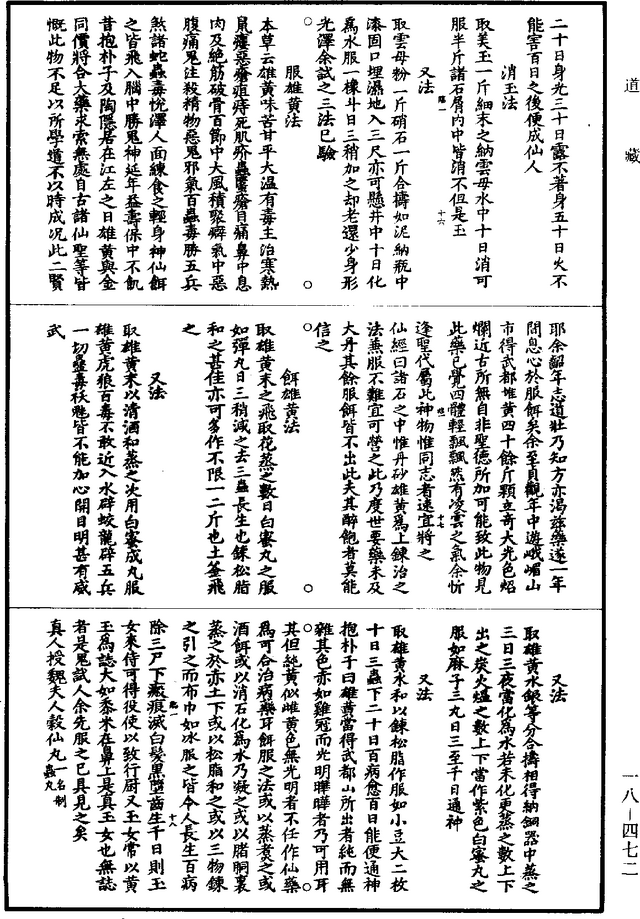 道藏
二十日身光三十日露不著身五十日火不
能害百日之後便成仙人
消玉法
取美玉一斤細末之納雲母水中十日消可
服半斤諸石屑內中皆消不但是玉
十六
又法
取雲母粉一斤硝石一斤合擣如泥納瓶中
漆固口埋濕地入三尺亦可懸井中十日化
為水服一棵斗日三稍加之却老還少身形
光澤余試之三法已驗
服雄黃法
本草云雄黃味苦甘平大溫有毒主治寒熱
鼠瘻惡瘡疽痔死肌疥蟲䘌瘡目痛鼻中息
肉及絶筋破骨百節中大風積聚癖氣中惡
腹痛鬼注殺精物惡鬼邪氣百蟲毒勝五兵
煞諸蛇蟲毒悅澤人面練食之輕身神仙餌
之皆飛入腦中勝鬼神延年益壽保中不飢
昔抱朴子及陶隱居在江左之日雄黃與金
同價將合大藥求索無處自古諸仙聖等皆
慨此物不足以所學道不以時成况此二賢
耶余韶年志道壯乃知方亦渴茲藥遂一年
閒息心於服餌矣余至貞觀年中遊峨嵋山
市得武都雄黃四十餘斤顆立奇大光色焰
爛近古所無自非聖德所加可能致此物見
此藥已覺四體輕飄飄然有凌雲之氣余忻
十七
逢聖代屬此神物惟同志者速宜將之
仙經曰諸石之中惟丹砂雄黃爲上鍊治之
法兼服不難宜可營之此乃度世要藥未及
大丹其餘服餌皆不出此夫其醉飽者莫能
信之
餌雄黃法
取雄黃末之飛取花蒸之數日白蜜丸之服
如彈丸日三稍減之去三蟲長生也鍊松脂
和之甚佳亦可多作不限一二斤也土釜飛
之
又法
取雄黃末以清酒和蒸之次用白蜜成丸服
雄黃虎狼百毒不敢近入水辟蛟龍辟五兵
一切蠱毒袄魅皆不能加心開目明甚有威
武
又法
取雄黃水銀等分合擣相得納銅器中蒸之
三日三夜當化為水若未化更蒸之數上下
出之炭火爐之數上下當作紫色白蜜丸之
服如麻子三丸日三至千日通神
又法
取雄黃水和以鍊松脂作服如小豆大二枚
十日三蟲下二十日百病愈百日能便通神
抱朴子曰雄黃當得武都山所出者純而無
雜其色赤如雞冠而光明曄曄者乃可用耳
其但純黃似雌黃色無光明者不任作仙藥
為可合治病藥耳餌服之法或以蒸煮之或
酒餌或以消石化爲水乃凝之或以腊胴裹
蒸之於赤土下或以松脂和之或以三物鍊
之引之而布巾如冰服之皆令人長生百病
十八
除三尸下瘢痕滅白髪黑墮齒生千日則玉
女來侍可得役使以致行廚又玉女常以黃
玉爲誌大如黍米在鼻上是真玉女也無誌
者是鬼試人余先服之已具見之矣
真人授魏夫人穀仙丸一名制蟲丸
一八-四七二